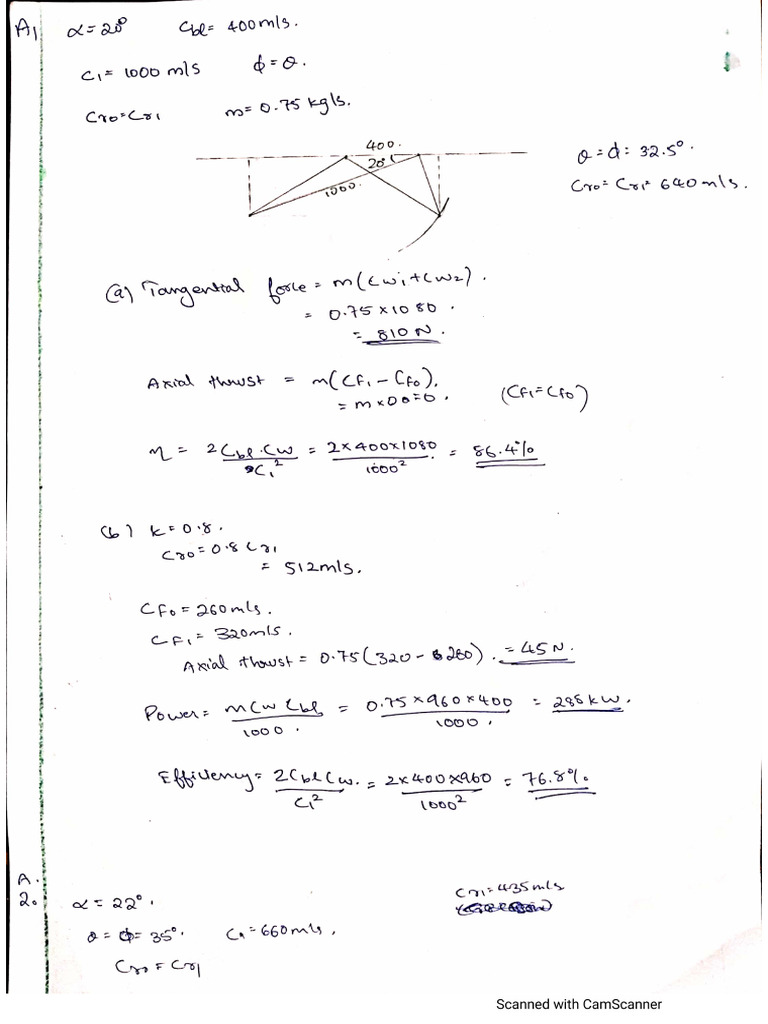 A1 α = 20° Cbl = 400 m/s.
C1 = 1000 m/s ϕ = θ.
Cr0 = Cr1 m = 0.75 kg/s.
400.
20°
1000.
θ = ϕ = 32.5°.
Cr0 = Cr1 = 640 m/s.
(a) Tangential force = m(Cw1 + Cw2).
= 0.75 × 1080.
= 810 N.
Axial thrust = m(Cf1 - Cf0). (Cf1 = Cf0)
= m × 0 = 0.
η = 2Cbl.Cw/C1² = 2×400×1080/1000² = 86.4%
(b) k = 0.8.
Cr0 = 0.8 Cr1
= 512 m/s.
Cf0 = 260 m/s.
Cf1 = 320 m/s.
Axial thrust = 0.75(320 - 260). = 45 N.
Power = mCwCbl/1000. = 0.75×960×400/1000. = 288 kW.
Efficiency = 2CblCw./C1² = 2×400×960/1000² = 76.8%.
A.
2. α = 22°. Cr1 = 435 m/s
θ = ϕ = 35°. C1 = 660 m/s.
Cr0 = Cr1
Scanned with CamScanner